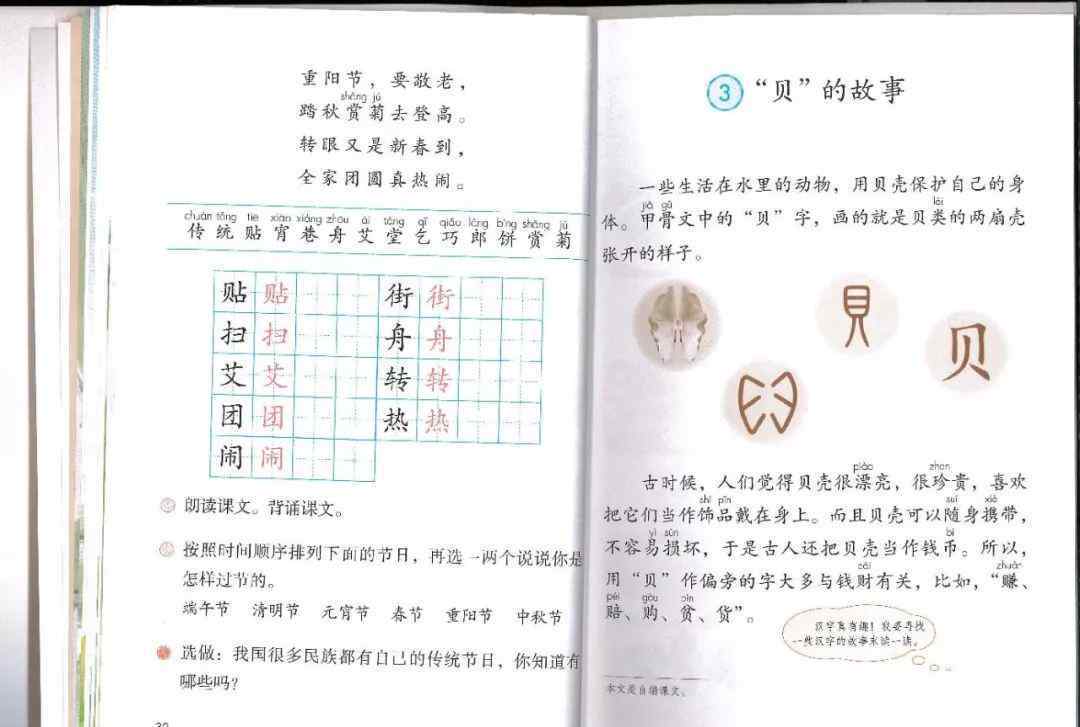 重阳节，要敬老，
shǎng jú
踏秋赏菊去登高。
转眼又是新春到，
全家团圆真热闹。
chuán tǒng tiē xiāo xiàng zhōu ài táng qǐ qiǎo láng bǐng shǎng jú
传 统 贴 宵 巷 舟 艾 堂 乞 巧 郎 饼 赏 菊
贴 贴 街 街
扫 扫 舟 舟
艾 艾 转 转
团 团 热 热
闹 闹
朗读课文。背诵课文。
按照时间顺序排列下面的节日，再选一两个说说你是
怎样过节的。
端午节 清明节 元宵节 春节 重阳节 中秋节
选做：我国很多民族都有自己的传统节日，你知道有
哪些吗？
3 “贝”的故事
一些生活在水里的动物，用贝壳保护自己的身
jiǎ gǔ lèi
体。甲骨文中的“贝”字，画的就是贝类的两扇壳
张开的样子。
貝
贝
piào zhēn
古时候，人们觉得贝壳很漂亮，很珍贵，喜欢
shì pǐn suí xié
把它们当作饰品戴在身上。而且贝壳可以随身携带，
yì sǔn bì
不容易损坏，于是古人还把贝壳当作钱币。所以，
cái zhuàn
用“贝”作偏旁的字大多与钱财有关，比如，“赚、
péi gòu pín
赔、购、贫、货”。
汉字真有趣！我要寻找
一些汉字的故事来读一读。
本文是自编课文。